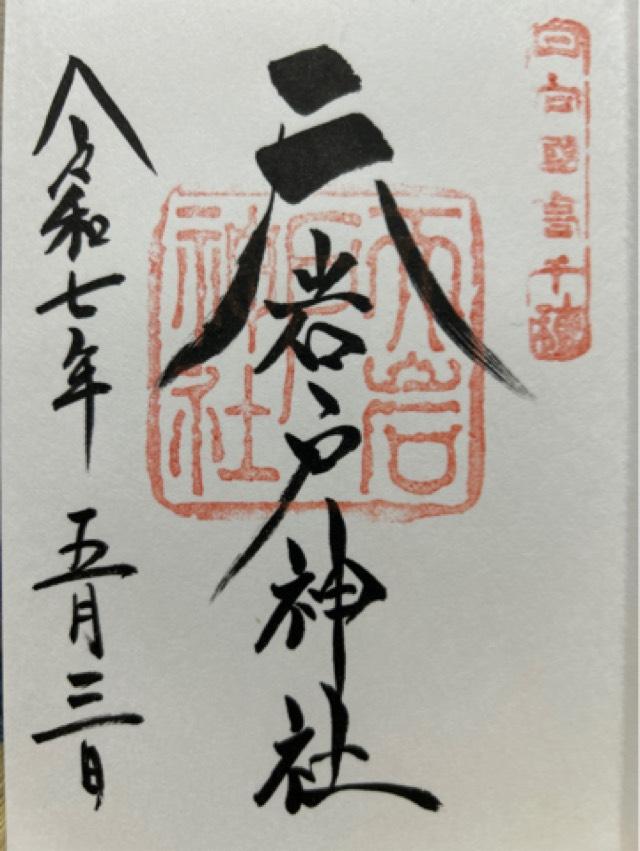 日向国高千穂
天岩戸神社
天岩戸神社
令和七年 五月三日